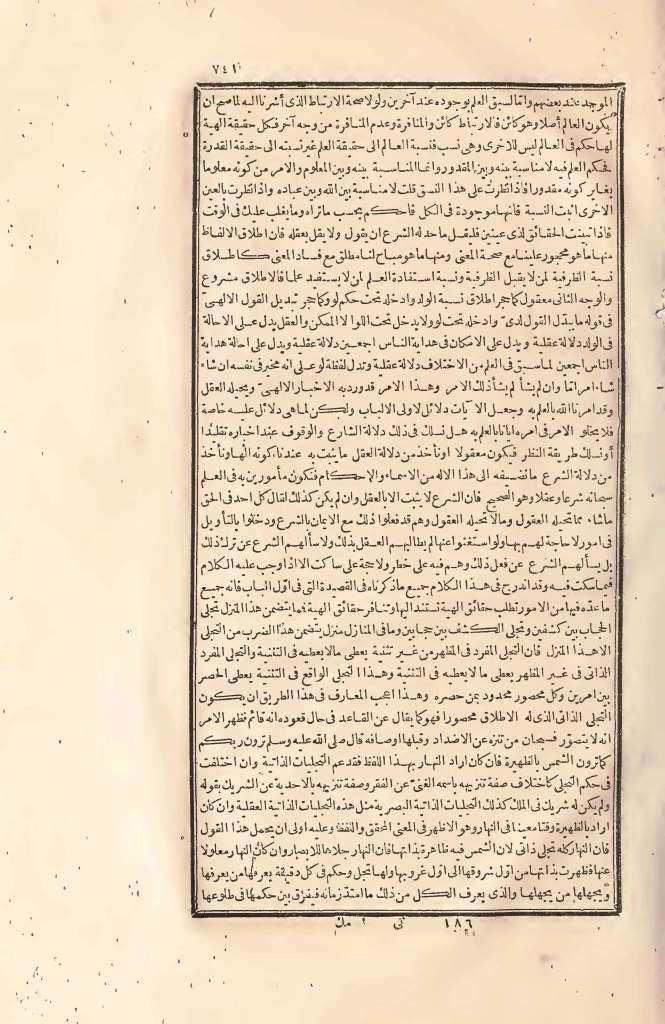 ٧٤١
الموجد عند بعضهم واتما لسبق العلم بوجوده عند آخرين ولولا صحة الارتباط الذى أشرنا اليه لما صح ان
يكون العالم أصلا وهو كائن فالارتباط كائن والمنافرة وعدم المنافرة من وجه آخر فكل حقيقة الهية
لها حكم فى العالم ليس للاخرى وهى نسب فنسبة العالم الى حقيقة العلم غير نسبته الى حقيقة القدرة
فحكم العلم فيه لا مناسبة بينه وبين المقدور وانما المناسبة بينه وبين المعلوم والامر من كونه معلوما
يغاير كونه مقدورا فاذا نظرت على هذا النسق قلت لا مناسبة بين الله وبين عباده واذا نظرت بالعين
الاخرى أثبت النسبة فانها موجودة فى الكل فاحكم بحسب ما تراه وما يغلب عليك فى الوقت
فاذا تبينت الحقائق لذى عينين فليقل ما حد له الشرع ان يقول ولا يقل بعقله فان اطلاق الالفاظ
منها ما هو محجور علينا مع صحة المعنى ومنها ما هو مباح لنا مطلق مع فساد المعنى كاطلاق
نسبة الظرفية لمن لا يقبل الظرفية ونسبة استفادة العلم لمن لا يستفيد علما فالاطلاق مشروع
والوجه الثانى معقول كما حجر اطلاق نسبة الولد وادخله تحت حكم لو وكما حجر تبديل القول الالهىّ
فى قوله ما يبدّل القول لدىّ وادخله تحت لو ولا يدخل تحت اللو الا الممكن والعقل يدل على الاحالة
فى الولد دلالة عقلية ويدل على الامكان فى هداية الناس اجمعين دلالة عقلية ويدل على احالة هداية
الناس اجمعين لما سبق فى العلم من الاختلاف دلالة عقلية وتدل لفظة لو على انه مخير فى نفسه ان شاء
شاء امرا تما وان لم يشأ لم يشأ ذلك الامر وهذا الامر قد ورد به الاخبار الالهىّ ويحيله العقل
وقد امرنا الله بالعلم به وجعل الآيات دلائل لاولى الالباب ولكن لما هى دلائل عليه خاصة
فلا يخلو الامر فى امره ايانا بالعلم به هل نسلك فى ذلك دلالة الشارع والوقوف عند اخباره تقليدا
أو نسلك طريقة النظر فيكون معقولا او نأخذ من دلالة العقل ما يثبت به عندنا كونه الها ونأخذ
من دلالة الشرع ما نضيفه الى هذا الاله من الاسماء والاحكام فنكون مأمورين به فى العلم
سبحانه شرعا وعقلا وهو الصحيح فان الشرع لا يثبت الا بالعقل وان لم يكن كذلك لقال كل احد فى الحق
ما شاء مما تحيله العقول وما لا تحيله العقول وهم قد فعلوا ذلك مع الايمان بالشرع ودخلوا بالتأويل
فى امور لا حاجة لهم بها ولو استغنوا عنها لم يطالبهم العقل بذلك ولا سألهم الشرع عن ترك ذلك
بل يسألهم الشرع عن فعل ذلك وهم فيه على خطر ولا حجة على ساكت الا اذا وجب عليه الكلام
فيما سكت فيه وقد اندرج فى هذا الكلام جميع ما ذكرناه فى القصيدة التى فى اوّل الباب فانه جميع
ما عدّه فيها من الامور تطلب حقائق الهية تستند اليها وتنافر حقائق الهية فما يتضمن هذا المنزل تجلى
الحجاب بين كشفين وتجلى الكشف بين حجابين وما فى المنازل منزل يتضمن هذا الضرب من التجلى
الا هذا المنزل فان التجلى المفرد فى المظهر من غير تثنية يعطى ما لا يعطيه فى التثنية والتجلى المفرد
الذاتى فى غير المظهر يعطى ما لا يعطيه فى التثنية وهذا التجلى الواقع فى التثنية يعطى الحصر
بين امرين وكل محصور محدود بمن حصره وهذا اعجب المعارف فى هذا الطريق ان يكون
التجلى الذاتى الذى له الاطلاق محصورا فهو كما يقال عن القاعد فى حال قعوده انه قائم فظهر الامر
انه لا يتصوّر فسبحان من تنزه عن الاضداد وقبلها اوصافه قال صلى الله عليه وسلم ترون ربكم
كما ترون الشمس بالظهيرة فان كان اراد النهار بهذا اللفظ فقد عم التجليات الذاتية وان اختلفت
فى حكم التجلى كاختلاف صفة تنزيهه باسمه الغنىّ عن الفقر وصفة تنزيهه بالاحدية عن الشريك بقوله
ولم يكن له شريك فى الملك كذلك التجليات الذاتية البصرية مثل هذه التجليات الذاتية العقلية وان كان
اراد بالظهيرة وقتا معينا فى النهار وهو الاظهر فى المعنى المحقق واللفظ وعليه اولى ان يحمل هذا القول
فان النهار كله تجلى ذاتى لان الشمس فيه ظاهرة بذاتها فان النهار جلاها للابصار وان كان النهار معلولا
عنها فظهرت بذاتها من اوّل شروقها الى اوّل غروبها ولها تجل وحكم فى كل دقيقة يعرفها من يعرفها
ويجهلها من يجهلها والذى يعرف الكل من ذلك ما امتدّ زمانه فيفرق بين حكمها فى طلوعها
١٨٦ نى مك